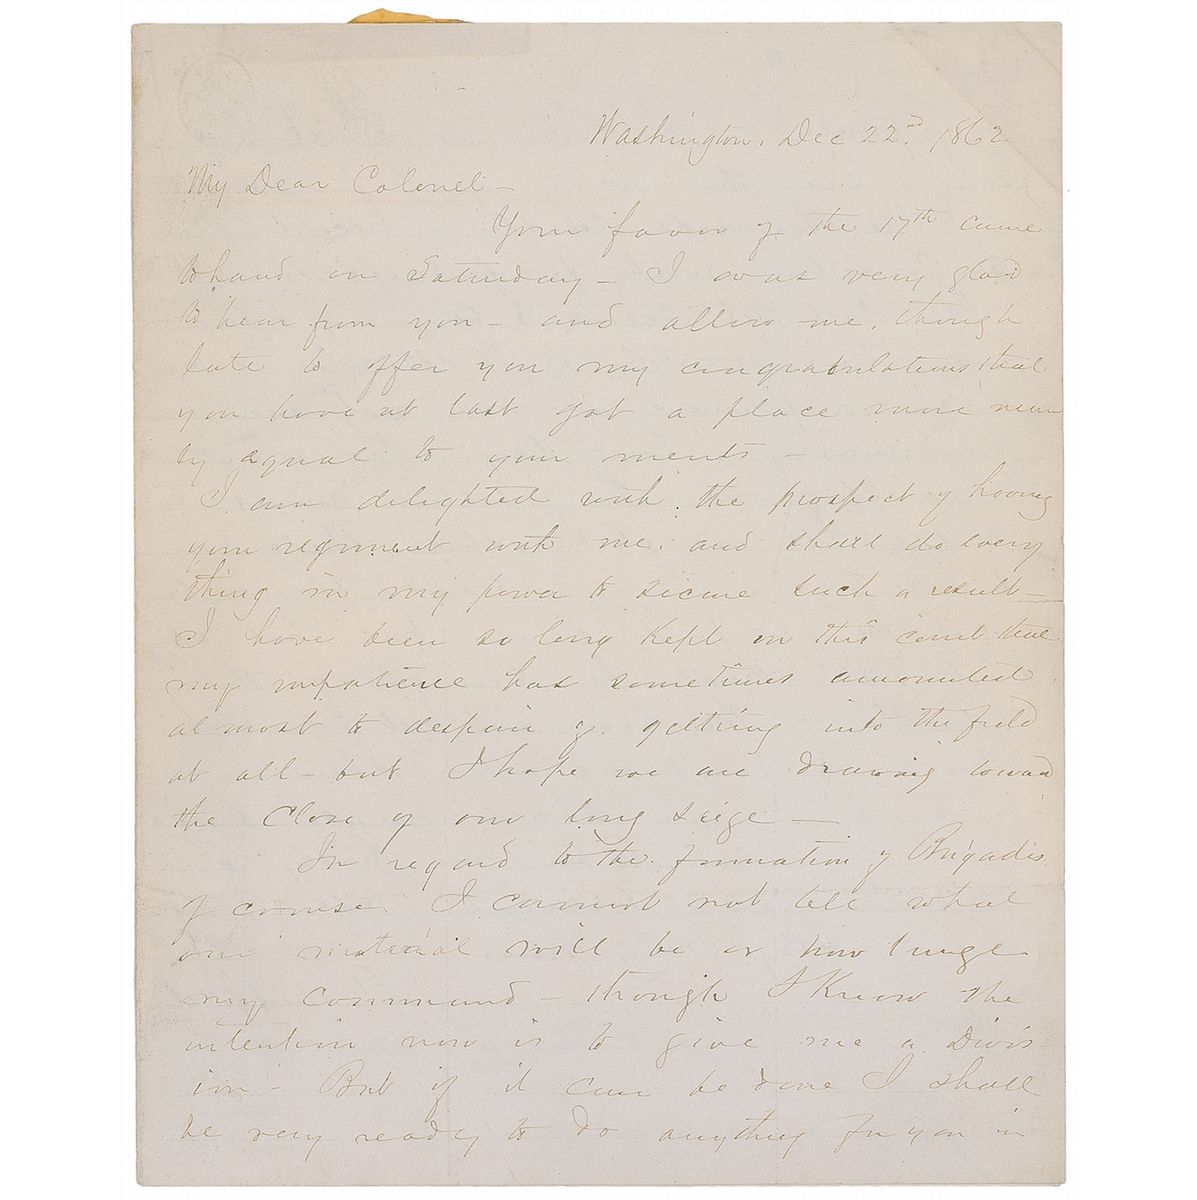 Washington, Dec 22nd, 1862
My Dear Colonel -
Your favor of the 17th came
to hand on Saturday - I was very glad
to hear from you - and allow me, though
late to offer you my congratulations that
you have at last got a place more near
ly equal to your merits -
I am delighted with the prospect of having
your regiment with me, and shall do every
thing in my power to secure such a result -
I have been so long kept on this court that
my impatience has sometimes amounted
almost to despair of getting into the field
at all - but I hope we are drawing toward
the close of our long siege -
In regard to the formation of Brigades
of course I cannot not tell what
our material will be or how large
my command - though I know the
intention now is to give me a Divis
ion - But if it can be done I shall
be very ready to do anything for you in